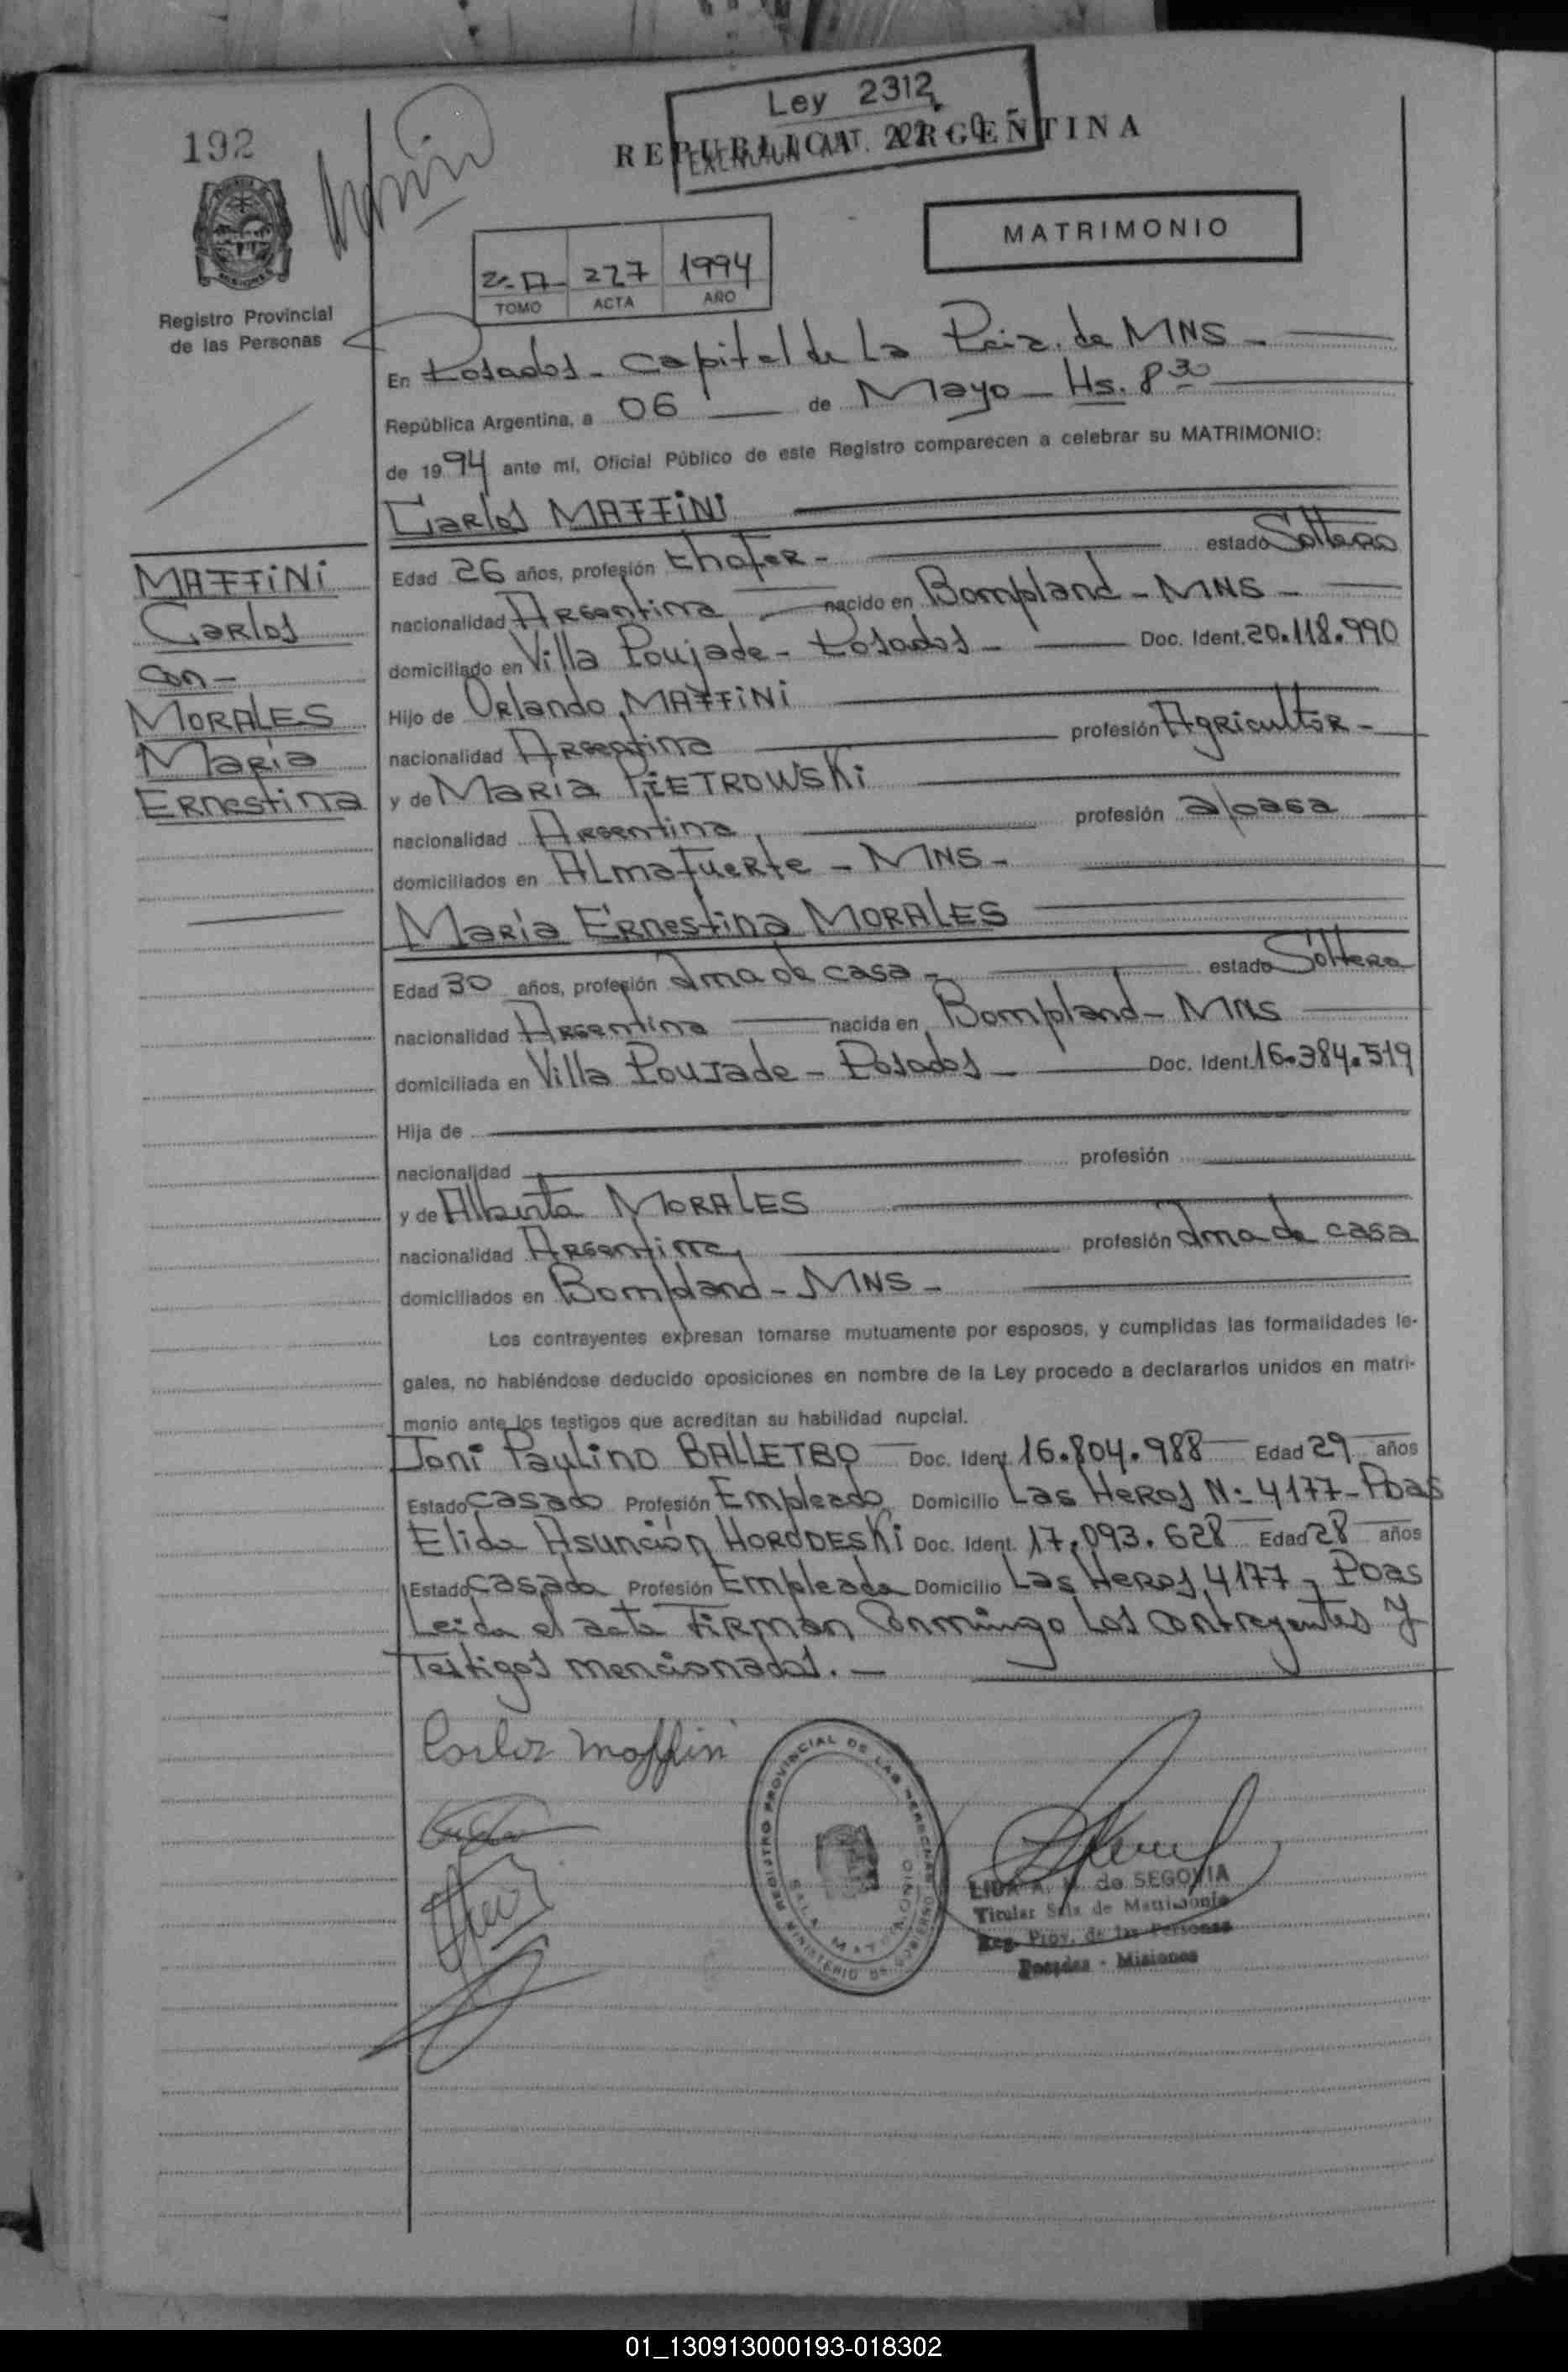 192
Ley 2312
EXENCION ART. 222 -
REPUBLICA ARGENTINA
MATRIMONIO
227 1994
TOMO ACTA AÑO
Registro Provincial
de las Personas
En Posadas - Capital de La Pcia. de MNS -
República Argentina, a 06 de Mayo - Hs. 8 30
de 1994 ante mí, Oficial Público de este Registro comparecen a celebrar su MATRIMONIO:
Carlos MAFFINI
Edad 26 años, profesión chofer - estado Soltero
nacionalidad Argentina nacido en Bompland - MNS -
domiciliado en Villa Poujade - Posadas - Doc. Ident. 20.118.990
Hijo de Orlando MAFFINI
nacionalidad Argentina profesión Agricultor -
y de Maria PIETROWSKi
nacionalidad Argentina profesión a/casa
domiciliados en ALmafuerte - MNS -
Maria Ernestina MORALES
Edad 30 años, profesión Ama de casa - estado Soltera
nacionalidad Argentina nacida en Bompland - MNS
domiciliada en Villa Poujade - Posadas - Doc. Ident. 16.384.519
Hija de
nacionalidad profesión
y de Alberta MORALES
nacionalidad Argentina profesión Ama de casa
domiciliados en Bompland - MNS -
Los contrayentes expresan tomarse mutuamente por esposos, y cumplidas las formalidades le-
gales, no habiéndose deducido oposiciones en nombre de la Ley procedo a declararlos unidos en matri-
monio ante los testigos que acreditan su habilidad nupcial.
Joni Paulino BALLETBO Doc. Ident. 16.804.988 Edad 29 años
Estado casado Profesión Empleado Domicilio Las Heras N: 4177 - Poas
Elida Asunción HORODESKi Doc. Ident. 17.093.628 Edad 28 años
Estado casada Profesión Empleada Domicilio Las Heras 4177 - Poas
Leida el acta Firman Conmingo Los contrayentes y
Testigos mencionados. -
MAFFINI
Carlos
con -
MORALES
Maria
Ernestina
Carlos Maffini
REGISTRO PROVINCIAL DE LAS PERSONAS
SALA MATRIMONIO
MINISTERIO DE GOBIERNO
LIDA A. de SEGOVIA
Titular Sala de Matrimonio
Reg. Prov. de las Personas
Posadas - Misiones
01_130913000193-018302